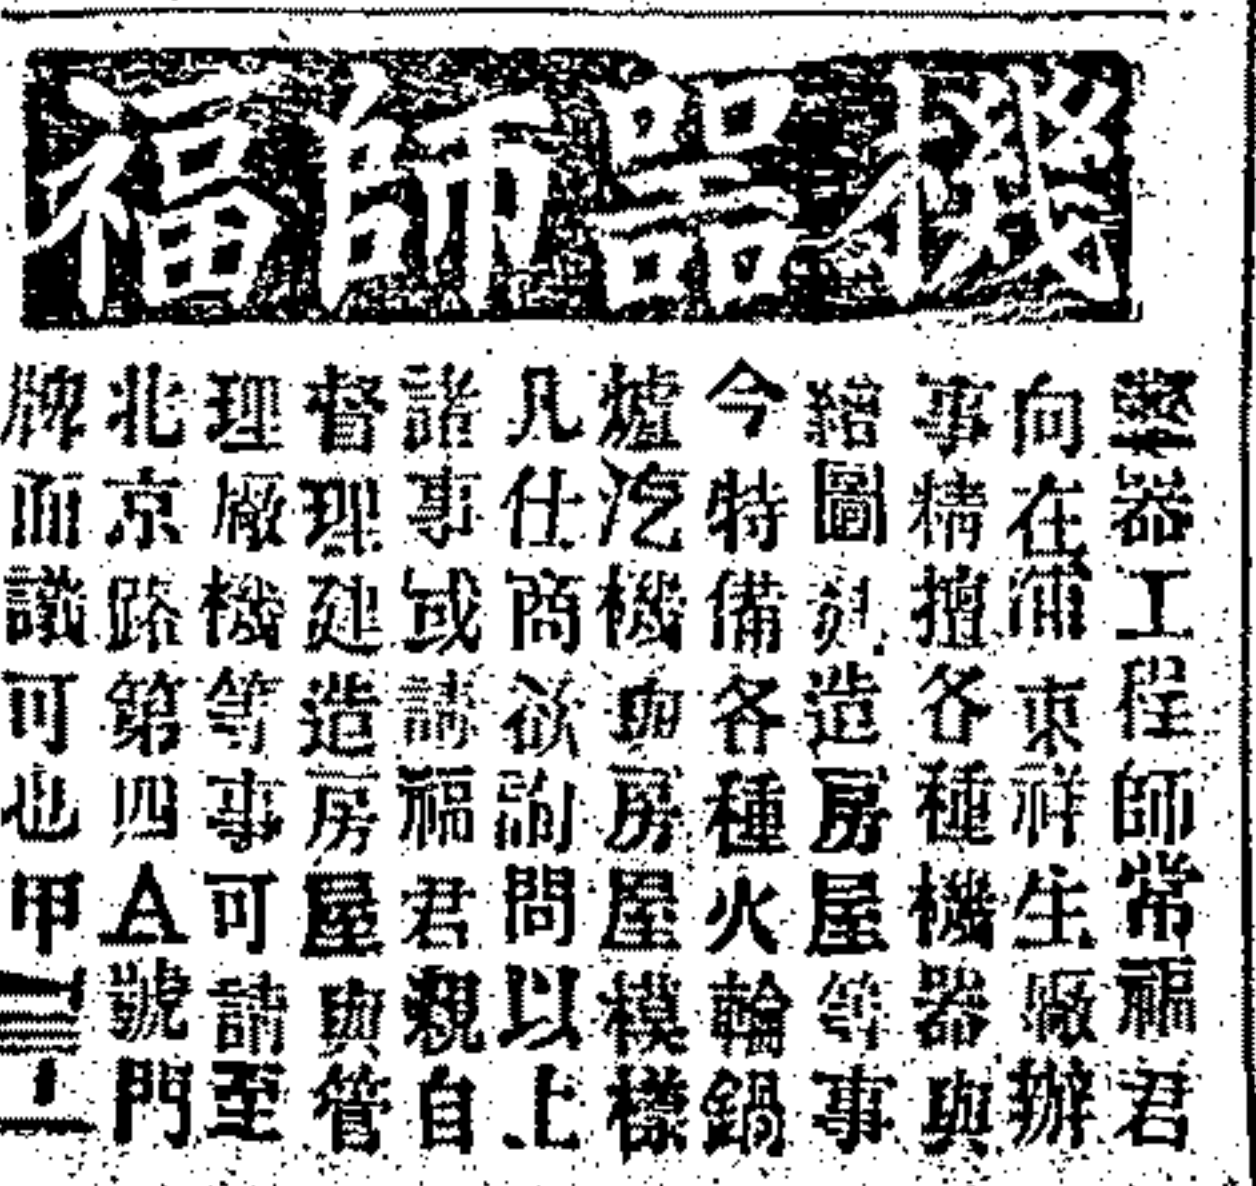 機器師福
器工程師常福君
向在浦東祥生廠辦
事精擅各種機器與
繪圖起造房屋等事
今特備各種火輪鍋
爐汽機與房屋模樣
凡仕商欲詢問以上
諸事或請福君親自
督理建造房屋與管
理廠機等事可請至
北京路第四A號門
牌面議可也甲